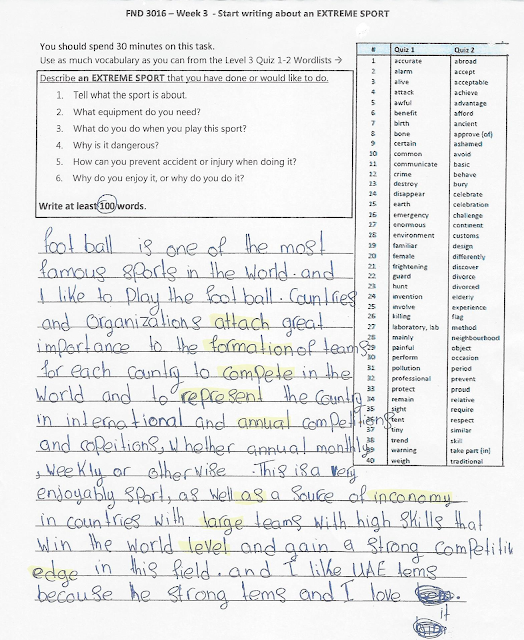 FND 3016 – Week 3 - Start writing about an EXTREME SPORT
You should spend 30 minutes on this task.
Use as much vocabulary as you can from the Level 3 Quiz 1-2 Wordlists →
Describe an EXTREME SPORT that you have done or would like to do.
1. Tell what the sport is about.
2. What equipment do you need?
3. What do you do when you play this sport?
4. Why is it dangerous?
5. How can you prevent accident or injury when doing it?
6. Why do you enjoy it, or why do you do it?
Write at least 100 words.
# Quiz 1 Quiz 2
1 accurate abroad
2 alarm accept
3 alive acceptable
4 attack achieve
5 awful advantage
6 benefit afford
7 birth ancient
8 bone approve (of)
9 certain ashamed
10 common avoid
11 communicate basic
12 crime behave
13 destroy bury
14 disappear celebrate
15 earth celebration
16 emergency challenge
17 enormous continent
18 environment customs
19 familiar design
20 female differently
21 frightening discover
22 guard divorce
23 hunt divorced
24 invention elderly
25 involve experience
26 killing flag
27 laboratory, lab method
28 mainly neighbourhood
29 painful object
30 perform occasion
31 pollution period
32 professional prevent
33 protect proud
34 remain relative
35 sight require
36 tent respect
37 tiny similar
38 trend skill
39 warning take part (in)
40 weigh traditional
foot ball is one of the most
famous sports in the world. and
I like to Play the foot ball. Countries
and Organizations attach great
importance to the formation of teams
for each country to compete in the
World and to represent the Country
in international and annual competitions
and copeitions, whether annual monthly
, weekly or otherwise. This is a very
enjoyably sport, as well as a source of inconomy
in countries with large teams with high skills that
win the world level and gain a strong Competitik
edge in this field. and I like UAE tems
because he strong tems and I love
it